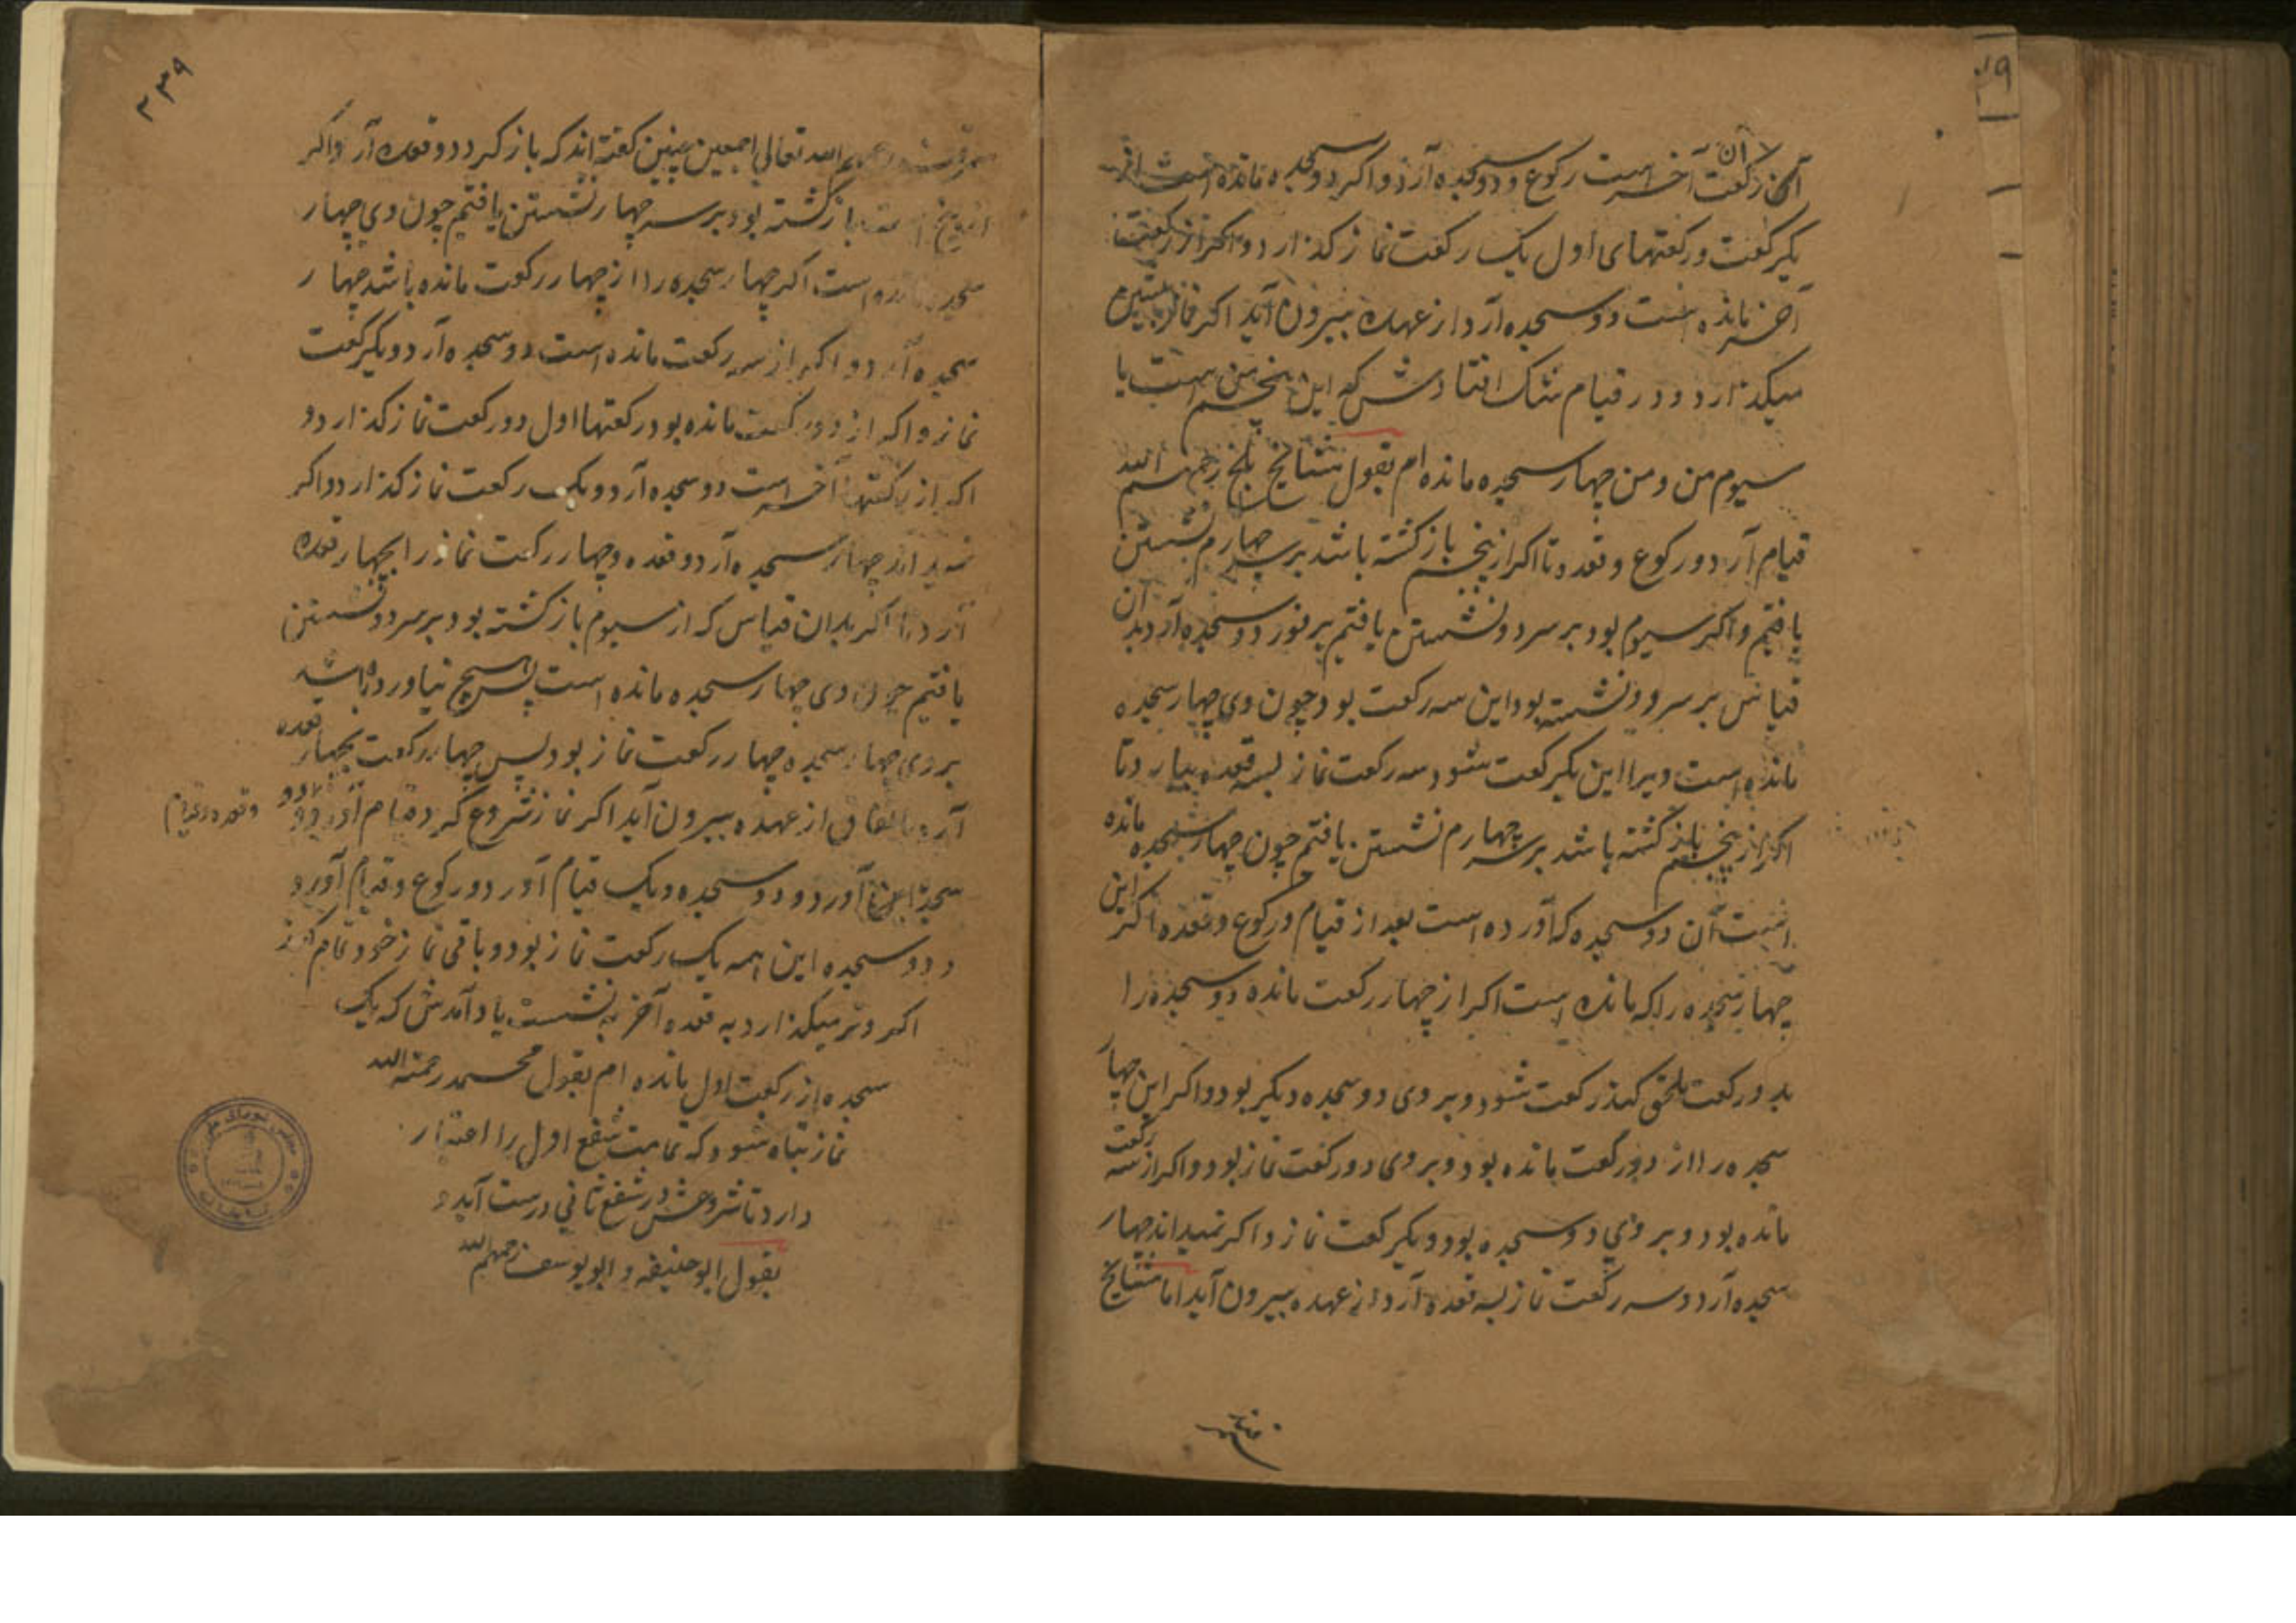 آن رکعت آخر است رکوع و دو سجده آرد و اکر دو سجده مانده است از
یکرکعت و رکعتهای اول یک رکعت نماز کذارد و اکر از رکعت
آخر مانده است دو سجده آرد از عهده بیرون آید اکر نماز پیشین
میکذارد و در قیام شک افتادش که این پنجم من است یا
سیوم من و من چهار سجده مانده ام بقول مشایخ بلخ رحمهم الله
قیام آرد و رکوع و قعده تا اکر از پنجم بازکشته باشد بر سر چهارم نشستن
یافتیم و اکر سیوم بود بر سر دو نشستن یافتیم بر فور دو سجده آرد بدان
قیاس بر سر دو نشسته بود این سه رکعت بود چون وی چهار سجده
مانده است ویرا این یکرکعت شود سه رکعت نماز بسه قعده بیارد تا
اکر از پنجم بازکشته باشد بر سر چهارم نشستن یافتیم چون چهار سجده مانده
است آن دو سجده که آورده است بعد از قیام و رکوع و قعده اکر این
چهار سجده را که مانده است اکر از چهار رکعت مانده دو سجده را
بدو رکعت ملحق کند رکعت شود و بر وی دو سجده دیکر بود و اکر این چهار
سجده را از دو رکعت مانده بود و بر وی دو رکعت نماز بود و اکر از سه رکعت
مانده بود و بر وی دو سجده بود و یکرکعت نماز و اکر نمیداند چهار
سجده آرد و سه رکعت نماز بسه قعده آرد از عهده بیرون آید اما مشایخ
۲۳۹
سمرقند الله تعالی اجمعین چنین کفته اند که باز کردد و قعده آرد و اکر
از پنج بازکشته بود بر سر چهار نشستن یافتیم چون وی چهار
سجده مانده است اکر چهار سجده را از چهار رکعت مانده باشد چهار
سجده آرد و اکر از سه رکعت مانده است دو سجده آرد و یکرکعت
نماز و اکر از دو رکعت مانده بود رکعتها اول دو رکعت نماز کذارد و
اکر از رکعتها آخر است دو سجده آرد و یک رکعت نماز کذارد و اکر
نمیداند چهار سجده آرد و قعده و چهار رکعت نماز را بچهار قعده
آرد تا اکر بدان قیاس که از سیوم بازکشته بود بر سر دو نشستن
یافتیم چون وی چهار سجده مانده است پس هیچ نیاورده باشد
بر وی چهار سجده چهار رکعت نماز بود پس چهار رکعت بچهار قعده
آرد باتفاق از عهده بیرون آید اکر نماز شروع کرد و قیام آورد و دو
سجده آورد و دو سجده و یک قیام آورد و رکوع و قیام آورد
و دو سجده این همه یک رکعت نماز بود و باقی نماز خود تمام کند
اکر وتر میکذارد به قعده آخر به نشست یاد آمدش که یک
سجده از رکعت اول مانده ام بقول محمد رحمة الله
نماز تباه شود که تمامیت شفع اول را اعتبار
دارد تا شروعش در شفع ثانی درست آید و
بقول ابوحنیفه و ابویوسف رحمهما الله